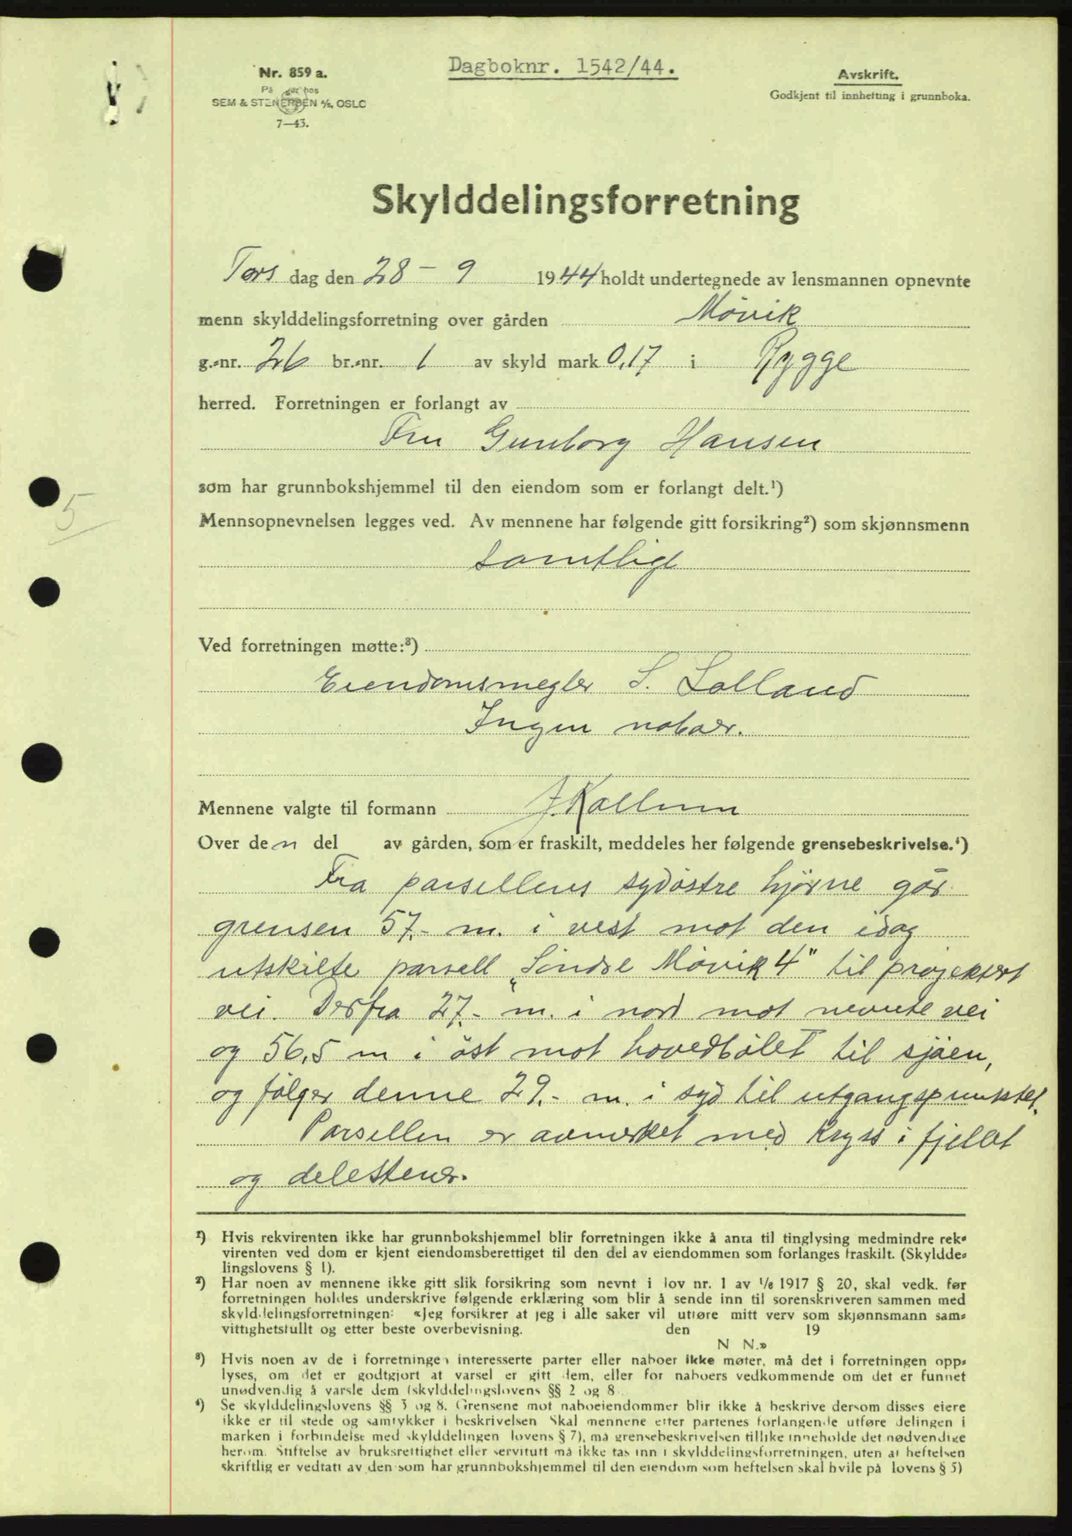 Nr. 859 a.
SEM & STENERSEN A/S, OSLO
7—43.
Dagboknr. 1542/44.
Avskrift.
Godkjent til innhefting i grunnboka.
Skylddelingsforretning
Tors dag den 28 - 9 1944 holdt undertegnede av lensmannen opnevnte
menn skylddelingsforretning over gården Møvik
g.-nr. 26 br.-nr. 1 av skyld mark 0,17 i Rygge
herred. Forretningen er forlangt av
Fru Gunborg Hansen
som har grunnbokshjemmel til den eiendom som er forlangt delt.¹)
Mennsopnevnelsen legges ved. Av mennene har følgende gitt forsikring²) som skjønnsmenn
samtlige
Ved forretningen møtte:³)
Eiendomsmegler S. Lolland
Ingen naboer.
Mennene valgte til formann J. Kallum
Over den del av gården, som er fraskilt, meddeles her følgende grensebeskrivelse.⁴)
Fra parsellens sydøstre hjørne går
grensen 57,- m. i vest mot den idag
utskilte parsell "Søndre Møvik 4" til prosjektert
vei. Derfra 27,- m. i nord mot nevnte vei
og 56,5 m i øst mot hovedbølet til sjøen,
og følger denne 29,- m. i syd til utgangspunktet.
Parsellen er avmerket med kryss i fjellet
og delestener.
¹) Hvis rekvirenten ikke har grunnbokshjemmel blir forretningen ikke å anta til tinglysing medmindre rek-
virenten ved dom er kjent eiendomsberettiget til den del av eiendommen som forlanges fraskilt. (Skyldde-
lingslovens § 1).
²) Har noen av mennene ikke gitt slik forsikring som nevnt i lov nr. 1 av 1/6 1917 § 20, skal vedk. før
forretningen holdes underskrive følgende erklæring som blir å sende inn til sorenskriveren sammen med
skylddelingsforretningen: «Jeg forsikrer at jeg i alle saker vil utføre mitt verv som skjønnsmann sam-
vittighetsfullt og etter beste overbevisning. den 19
N N.»
³) Hvis noen av de i forretningen interesserte parter eller naboer ikke møter, må det i forretningen opp-
lyses, om det er godtgjort at varsel er gitt dem, eller for naboers vedkommende om det er funnet
unødvendig å varsle dem (skylddelingslovens §§ 2 og 8
⁴) Se skylddelingslovens §§ 3 og 8. Grensene mot naboeiendommer blir ikke å beskrive dersom disses eiere
ikke er til stede og samtykker i beskrivelsen Skal mennene etter partenes forlangende utføre delingen i
marken i forbindelse med skylddelingen lovens § 7), må grensebeskrivelsen tillike inneholde det nødvendige
herom. Stiftelse av bruksrettighet eller servitutt må ikke tas inn i skylddelingsforretningen, uten at heftelsen
skriftlig er vedtatt av den som har grunnbokshjemmel til den eiendom som heftelsen skal hvile på lovens § 5)
5